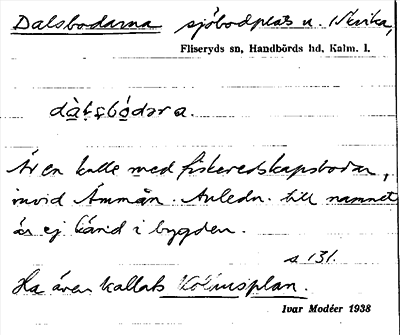 Dalsbodarna sjöbodplats u. Nevika,
Fliseryds sn, Handbörds hd, Kalm. l.
Är en kulle med fiskeredskapsbodar,
invid Ämmån. Anledn. till namnet
är ej känd i bygden.
s 131.
Ha även kallats Kölnusplan.
Ivar Modéer 1938